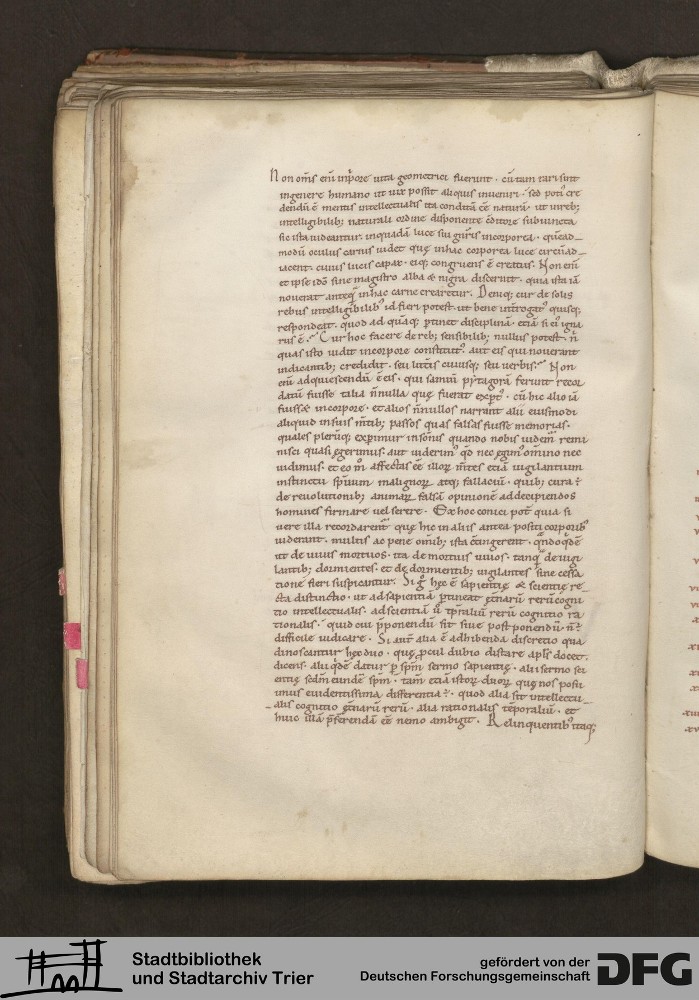 Non oms̄ eni īnpore uita geometrici fuerunt · cū tam rari sint
ingenere humano ut uix possit aliquis inueniri · sed poti᷒ cre
dendū ē mentis intellectualis ita conditā eē naturā · ut uireb;
intelligibilib; naturali ordine disponente cōditore subiuncta
sic ista uideantur · inquadā luce sui gn̄ris incorporea · quēad_
modū oculus carnis uidet quę inhac corporea luce circūad_
iacent · cuius lucis capax · eiq; congruens ē creatus · Non eni
et ipse idō sine magistro alba & nigra discernit · quia ista iā
nouerat anteq̄ inhac carne crearetur · Deniq; cur de solis
rebus intelligibilib᷒ id fieri potest · ut bene int̄rogat᷒ quisq;
respondeat · quod ad quāq; ꝑtinet disciplinā · etiā si ei᷒ igna
rus ē · Cur hoc facere de reb; sensibilib; nullus potest · n̄
quas isto uidit incorpore constitut᷒ · aut eis qui nouerant
indicantib; credidit · seu litt̄is cuiusq; seu uerbis · Non
eni adquiescendū ē eis · qui samiū pytagorā ferunt recor
datū fuisse talia n̄nulla quę fuerat exꝑt᷒ · cū hic alio iā
fuiss& incorpore · et alios n̄nullos narrant alii eiusmodi
aliquid insuis m̄tib; passos quas falsas fuisse memorias ·
quales plerūq; exꝑimur insōnis quando nobis uidem̄ remi
nisci quasi ęgerimus aut uiderim᷒ qd̄ nec ęgim᷒ om̄ino nec
uidimus · et eo m̄ affectas eē illoꝝ m̄tes etiā uigilantium
instinctu spūum malignoꝝ atq; fallaciū · quib; cura ē
de reuolutionib; animaꝝ falsā opinionē addecipiendos
homines firmare uel serere · Ex hoc conici pot̄ quia si
uere illa recordarent᷑ quę hic in aliis antea positi corporib᷒
uiderant · multis ac pene om̄ib; ista c̄tingerent · qn̄doqdē
ut de uiuis mortuos · ita de mortuis uiuos · tanq̄ de uigi
lantib; dormientes · et de dormientib; uigilantes sine cessa
tione fieri suspicantur · Si g᷒ hęc ē sapientię & scientię re_
cta distinctio · ut ad sapientiā ꝑtineat et̄narū rerū cogni
tio intellectualis · ad scientiā u̇ tp̄raliū rerū cognitio ra
tionalis · quid cui p̄ponendū sit siue postponendū · n̄ ē
difficile iudicare · Si aut̄ alia ē adhibenda discretio qua
dinoscantur hęc duo · quę ꝓcul dubio distare apl̄s docet ·
dicens · alii qdē datur ꝑ spm̄ sermo sapientię · alii sermo sci
entię sedm̄ eundē spm̄ · tam̄ etiā istoꝝ duoꝝ quę nos posui
mus euidentissima differentia ē · quod alia sit intellectu_
alis cognitio et̄narū rerū · alia rationalis tēporaliū · et
huic illā p̄ferendā eē nemo ambigit · Relinquentib᷒ itaq;
Stadtbibliothek
und Stadtarchiv Trier
gefördert von der
Deutschen Forschungsgemeinschaft
DFG